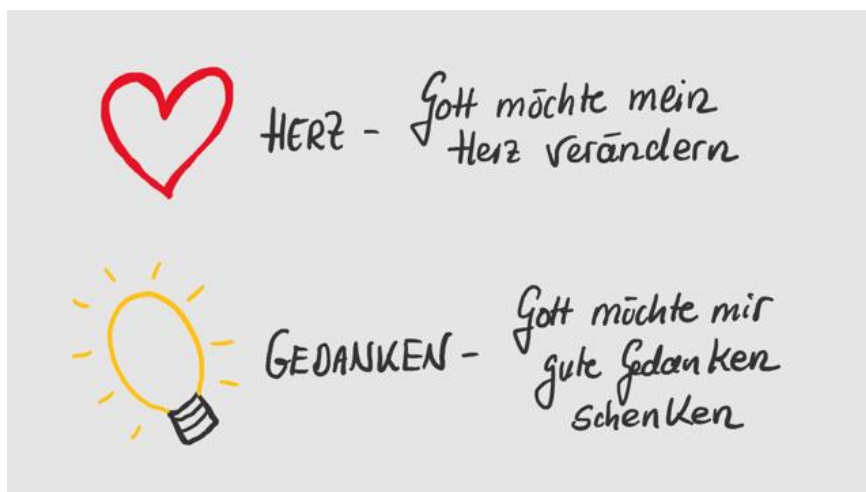 HERZ - Gott möchte mein
Herz verändern
GEDANKEN - Gott möchte mir
gute Gedanken
schenken